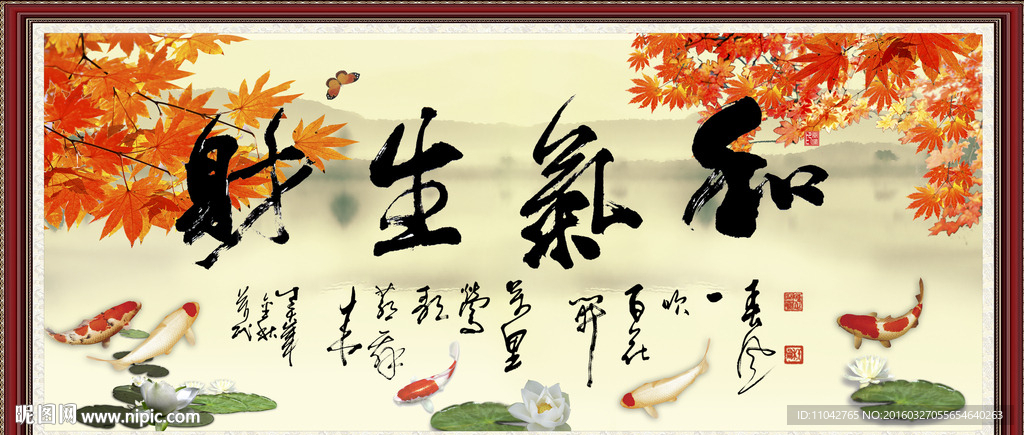 和氣生財
春风
一
吹
百花
開
萬里
鶯
歌
燕舞
来
昵图网 www.nipic.com
ID:11042765 NO:20160327055654640263